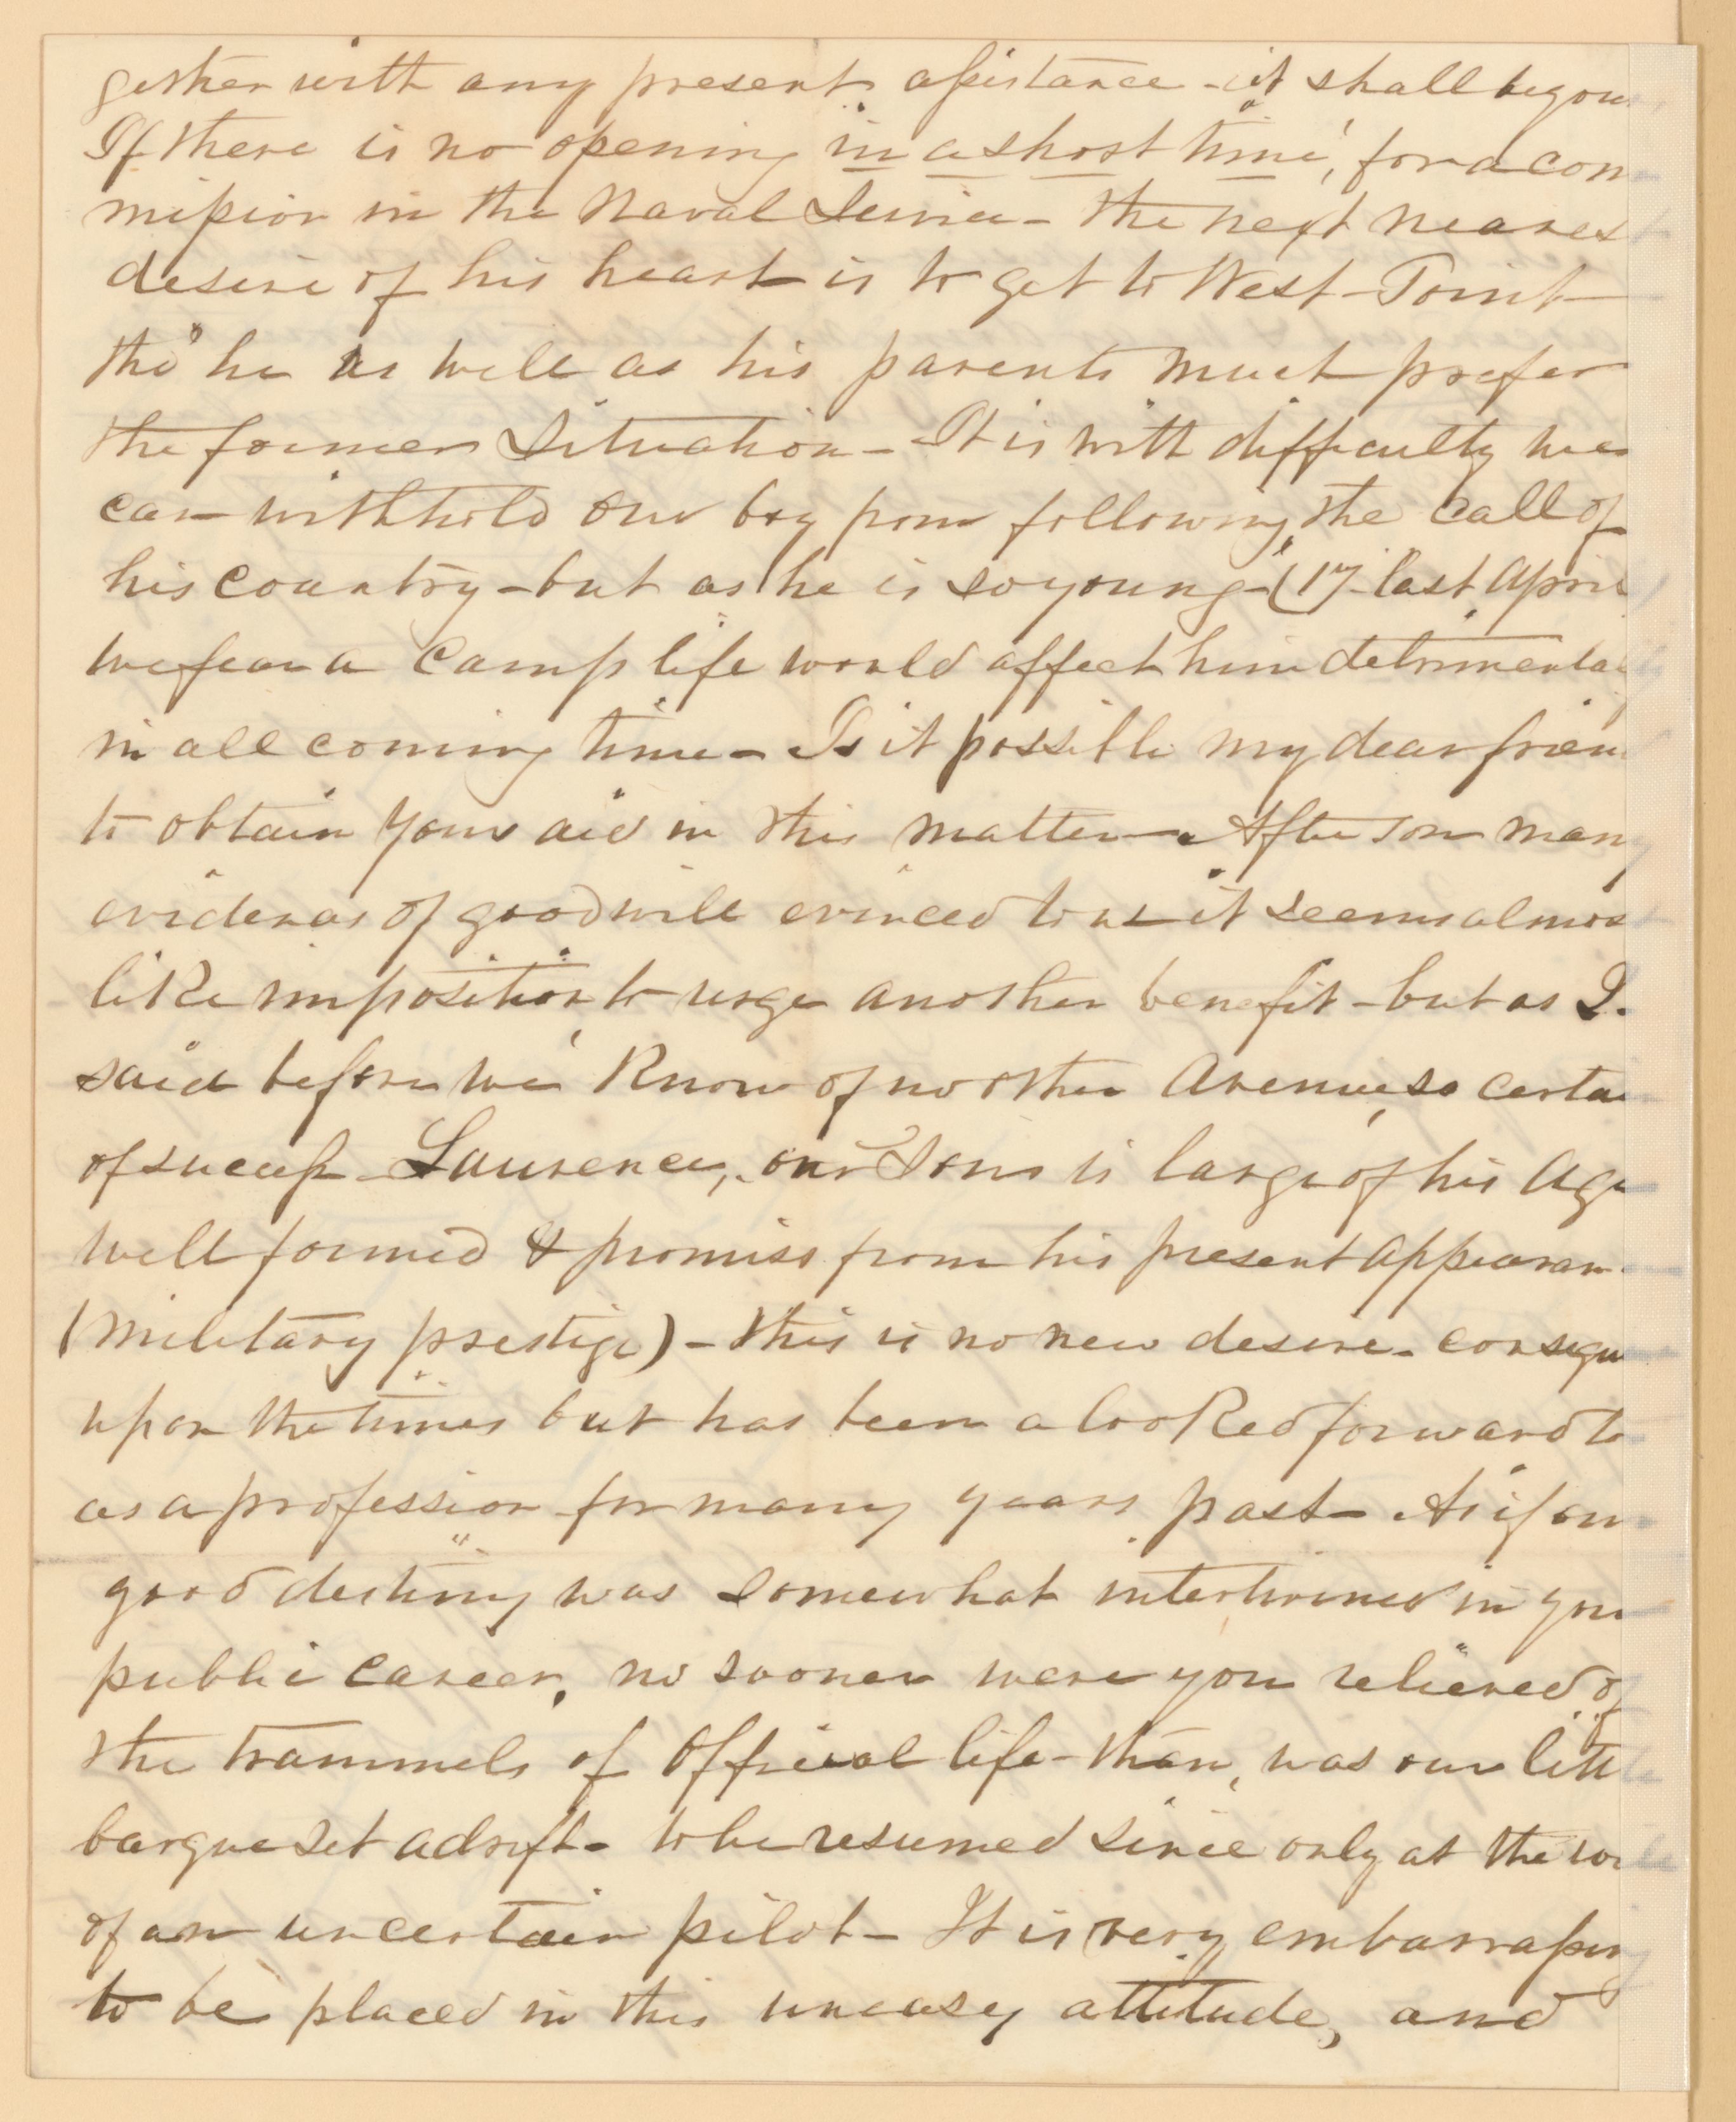 gether with any present assistance - it shall be your
If there is no opening in a short time, for a com
mission in the Naval Service - the next nearest
desire of his heart is to get to West-Point -
tho' he as well as his parents much prefer
the former Situation - It is with difficulty we
can withhold our boy from following the call of
his Country - but as he is so young - (17 last April
we fear a Camp life would affect him detrimentally
in all coming time - Is it possible my dear frien
to obtain your aid in this matter - After so many
evidences of good will evinced to us it seems almost
like imposition to urge another benefit - but as I
said before we Know of no other Avenue, so certai
of success - Laurence, our Son is large of his Age
well formed & promises from his present appearan
(military prestige) - this is no new desire - consequ
upon the times but has been a looked forward to
as a profession for many years past - As if our
good destiny was somewhat intertwined in your
public career, no sooner were you relieved of
the trammels of Official life - than, was our little
barque set adrift - to be resumed since only at the will
of an uncertain pilot - It is very embarrassing
to be placed in this uneasy attitude, and